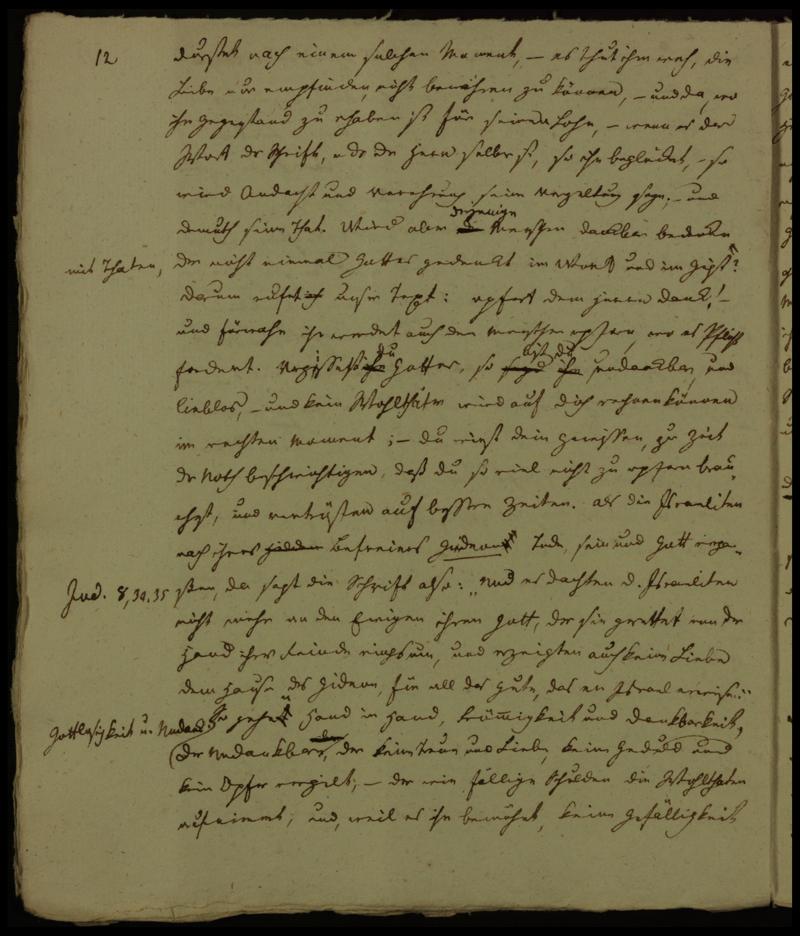 12
dürstet nach einem solchen Moment, – es thut ihm weh, die
Liebe nur empfinden, nicht bewähren zu können, – und da, wo
ihr Gegenstand zu erhaben ist für seinen Lohn, – wenn es der
Wort der Schrift, oder der Herr selbst ist, so ihn beglücket, – so
wird Andacht und Verehrung seine Vergeltung seyn, – und
Demuth seine That. Wird aber derjenige Menschen dankbar bedenken
mit Thaten, der nicht einmal Gottes gedenkt im Wort und im Geist?
Darum ruft unser Text: opfert dem Herrn Dank! –
und fürwahr ihr werdet auch den Menschen opfern, wo es Pflicht
fordert. Vergissest du Gottes, so bist du undankbar, und
lieblos, – und kein Wohlthäter wird auf dich rechnen können
im rechten Moment; – du wirst dein Gewissen, zur Zeit
der Noth beschwichtigen, daß du so viel nicht zu opfern brau-
chest, und vertrösten auf bessere Zeiten. Als die Israeliten
nach ihres Befreiers Gideons Tode, sein und Gott verga-
Jud. 8,34.35 ßen, da sagt die Schrift also: „Und es dachten d. Israeliten
nicht mehr an den Ewigen ihren Gott, der sie gerettet von der
Hand ihrer Feinde ringsum, und erzeigten auch keine Liebe
dem Hause des Gideon, für all das Gute, das er Israel erwiesen."
So gehen Hand in Hand, Frömmigkeit und Dankbarkeit,
Gottlosigkeit u. Undank
(Der Undankbare, der keine Treue und Liebe, keine Geduld und
kein Opfer vergilt; – der wie fällige Schulden die Wohlthaten
aufnimmt; und, weil es ihn bemühet, keine Gefälligkeit